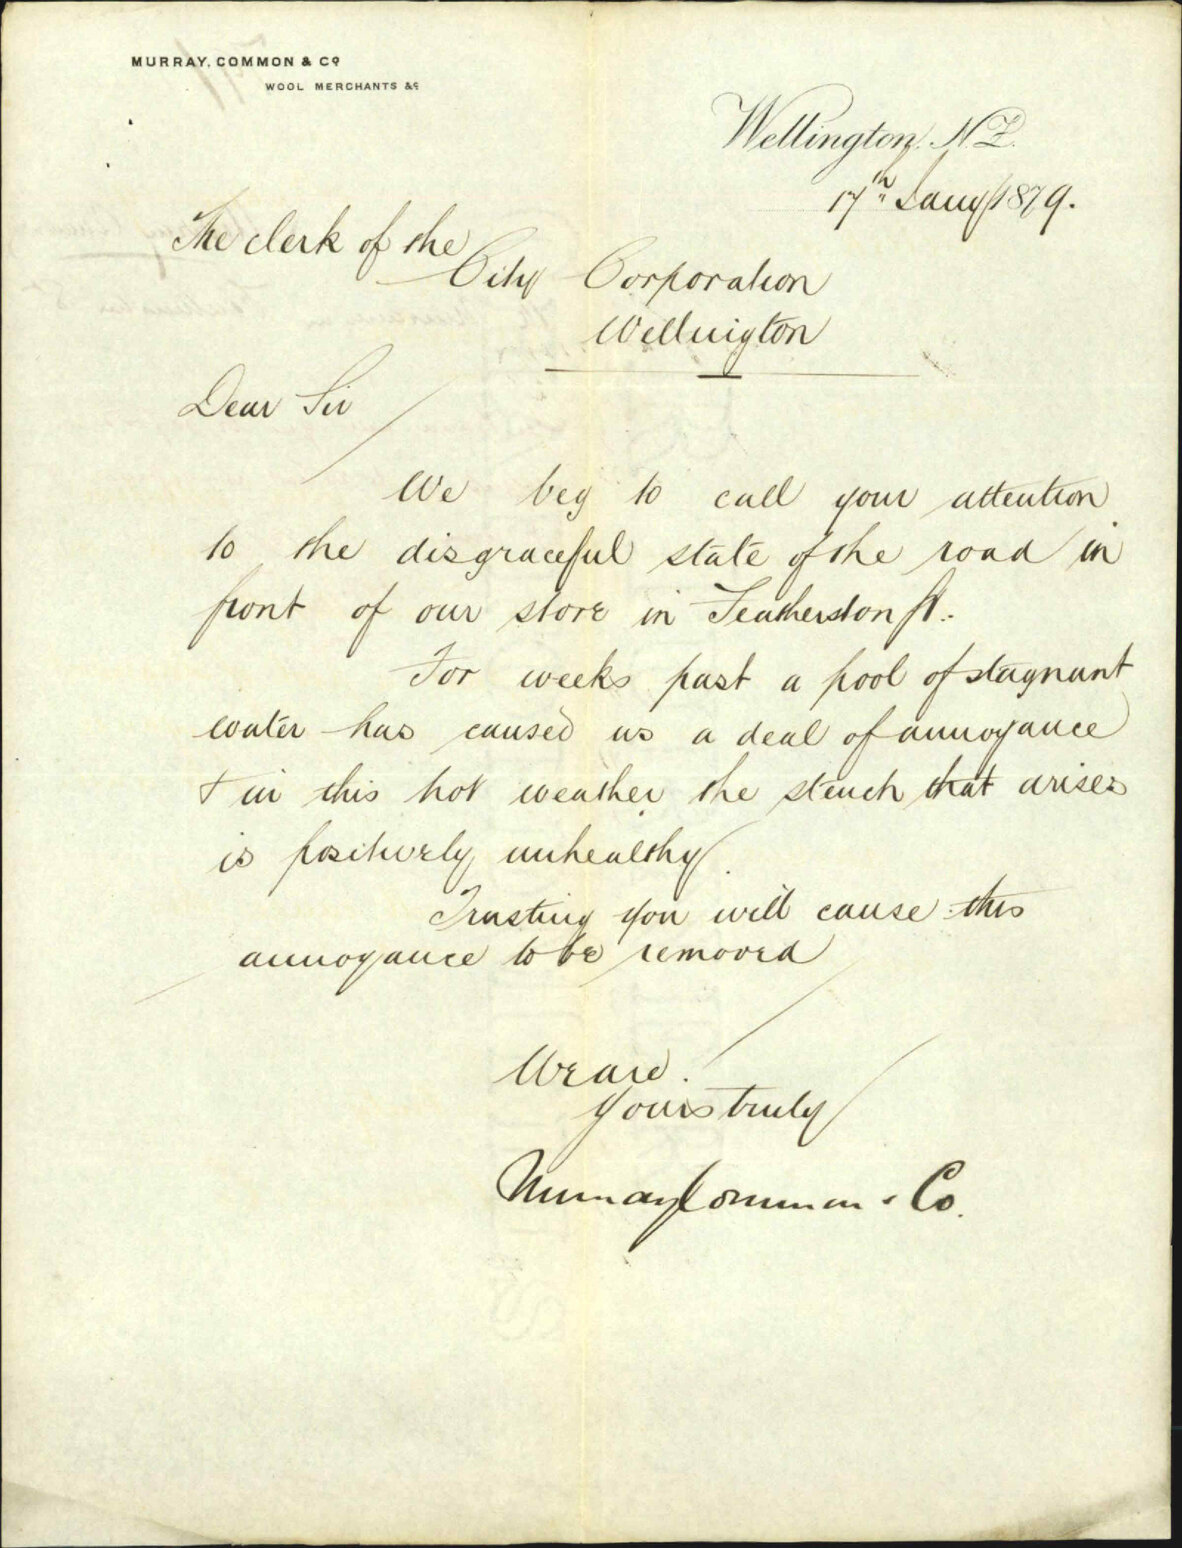 MURRAY, COMMON & Co
WOOL MERCHANTS &c
Wellington, N.Z.
17th Jany 1879.
The Clerk of the
City Corporation
Wellington
Dear Sir
We beg to call your attention
to the disgraceful state of the road in
front of our store in Featherston St.
For weeks past a pool of stagnant
water has caused us a deal of annoyance
& in this hot weather the stench that arises
is positively unhealthy.
Trusting you will cause this
annoyance to be removed
We are.
Yours truly
Murray Common & Co.